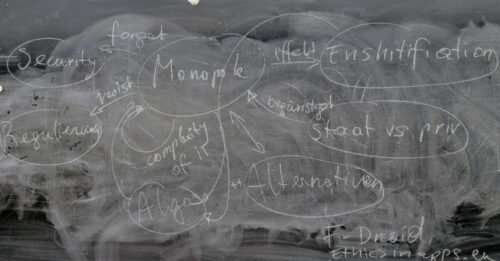 forget
effekt
Security
Monopole
Enshitification
resist
begünstigt
Regulierung
Staat vs priv
complexity
of it
Algo
++
Alternativen
F-Droid
Ethics in apps.eu